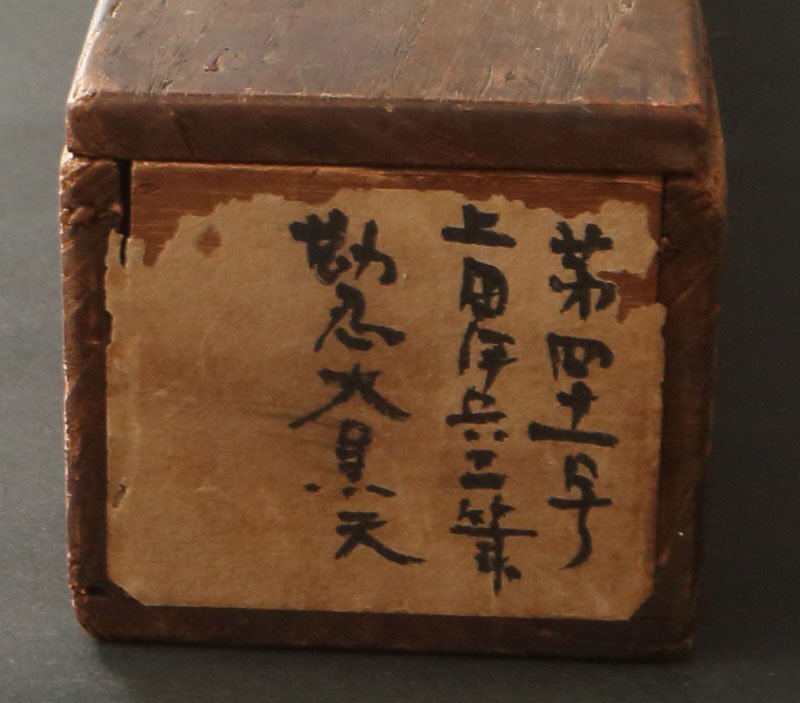 第四十一号
上田兵筆
勘忍大黒天